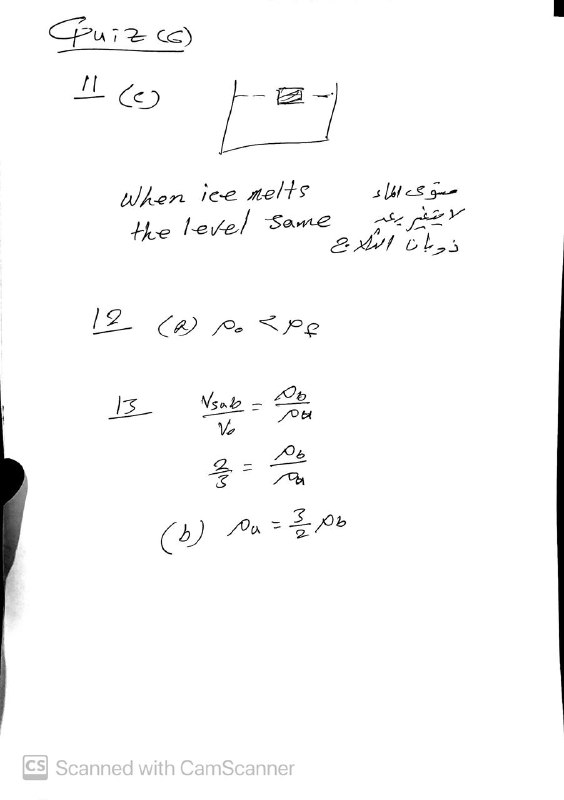 Quiz (6)
11 (c)
when ice melts
the level same
مستوى الماء
لا يتغير بعد
ذوبان الثلاج
12 (a) ρo < ρf
13 Vsub/Vo = ρb/ρa
2/3 = ρb/ρa
(b) ρa = 3/2 ρb
CS Scanned with CamScanner